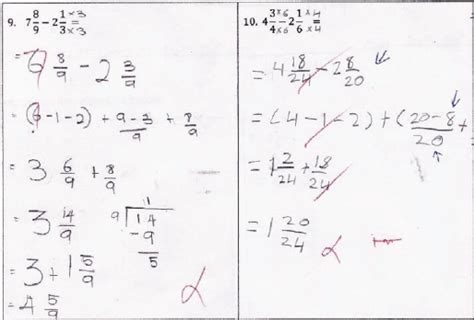 9. 7 8/9 - 2 1×3/3×3 =
= 6 8/9 - 2 3/9
= (6-1-2) + 9-3/9 + 8/9
= 3 6/9 + 8/9
= 3 14/9
9 14
- 9
5
= 3 + 1 5/9
= 4 5/9
10. 4 3×6/4×6 - 2 1×4/6×4 =
= 4 18/24 - 2 8/20
= (4-1-2) + (20-8/20 +
= 1 2/24 + 18/24
= 1 20/24